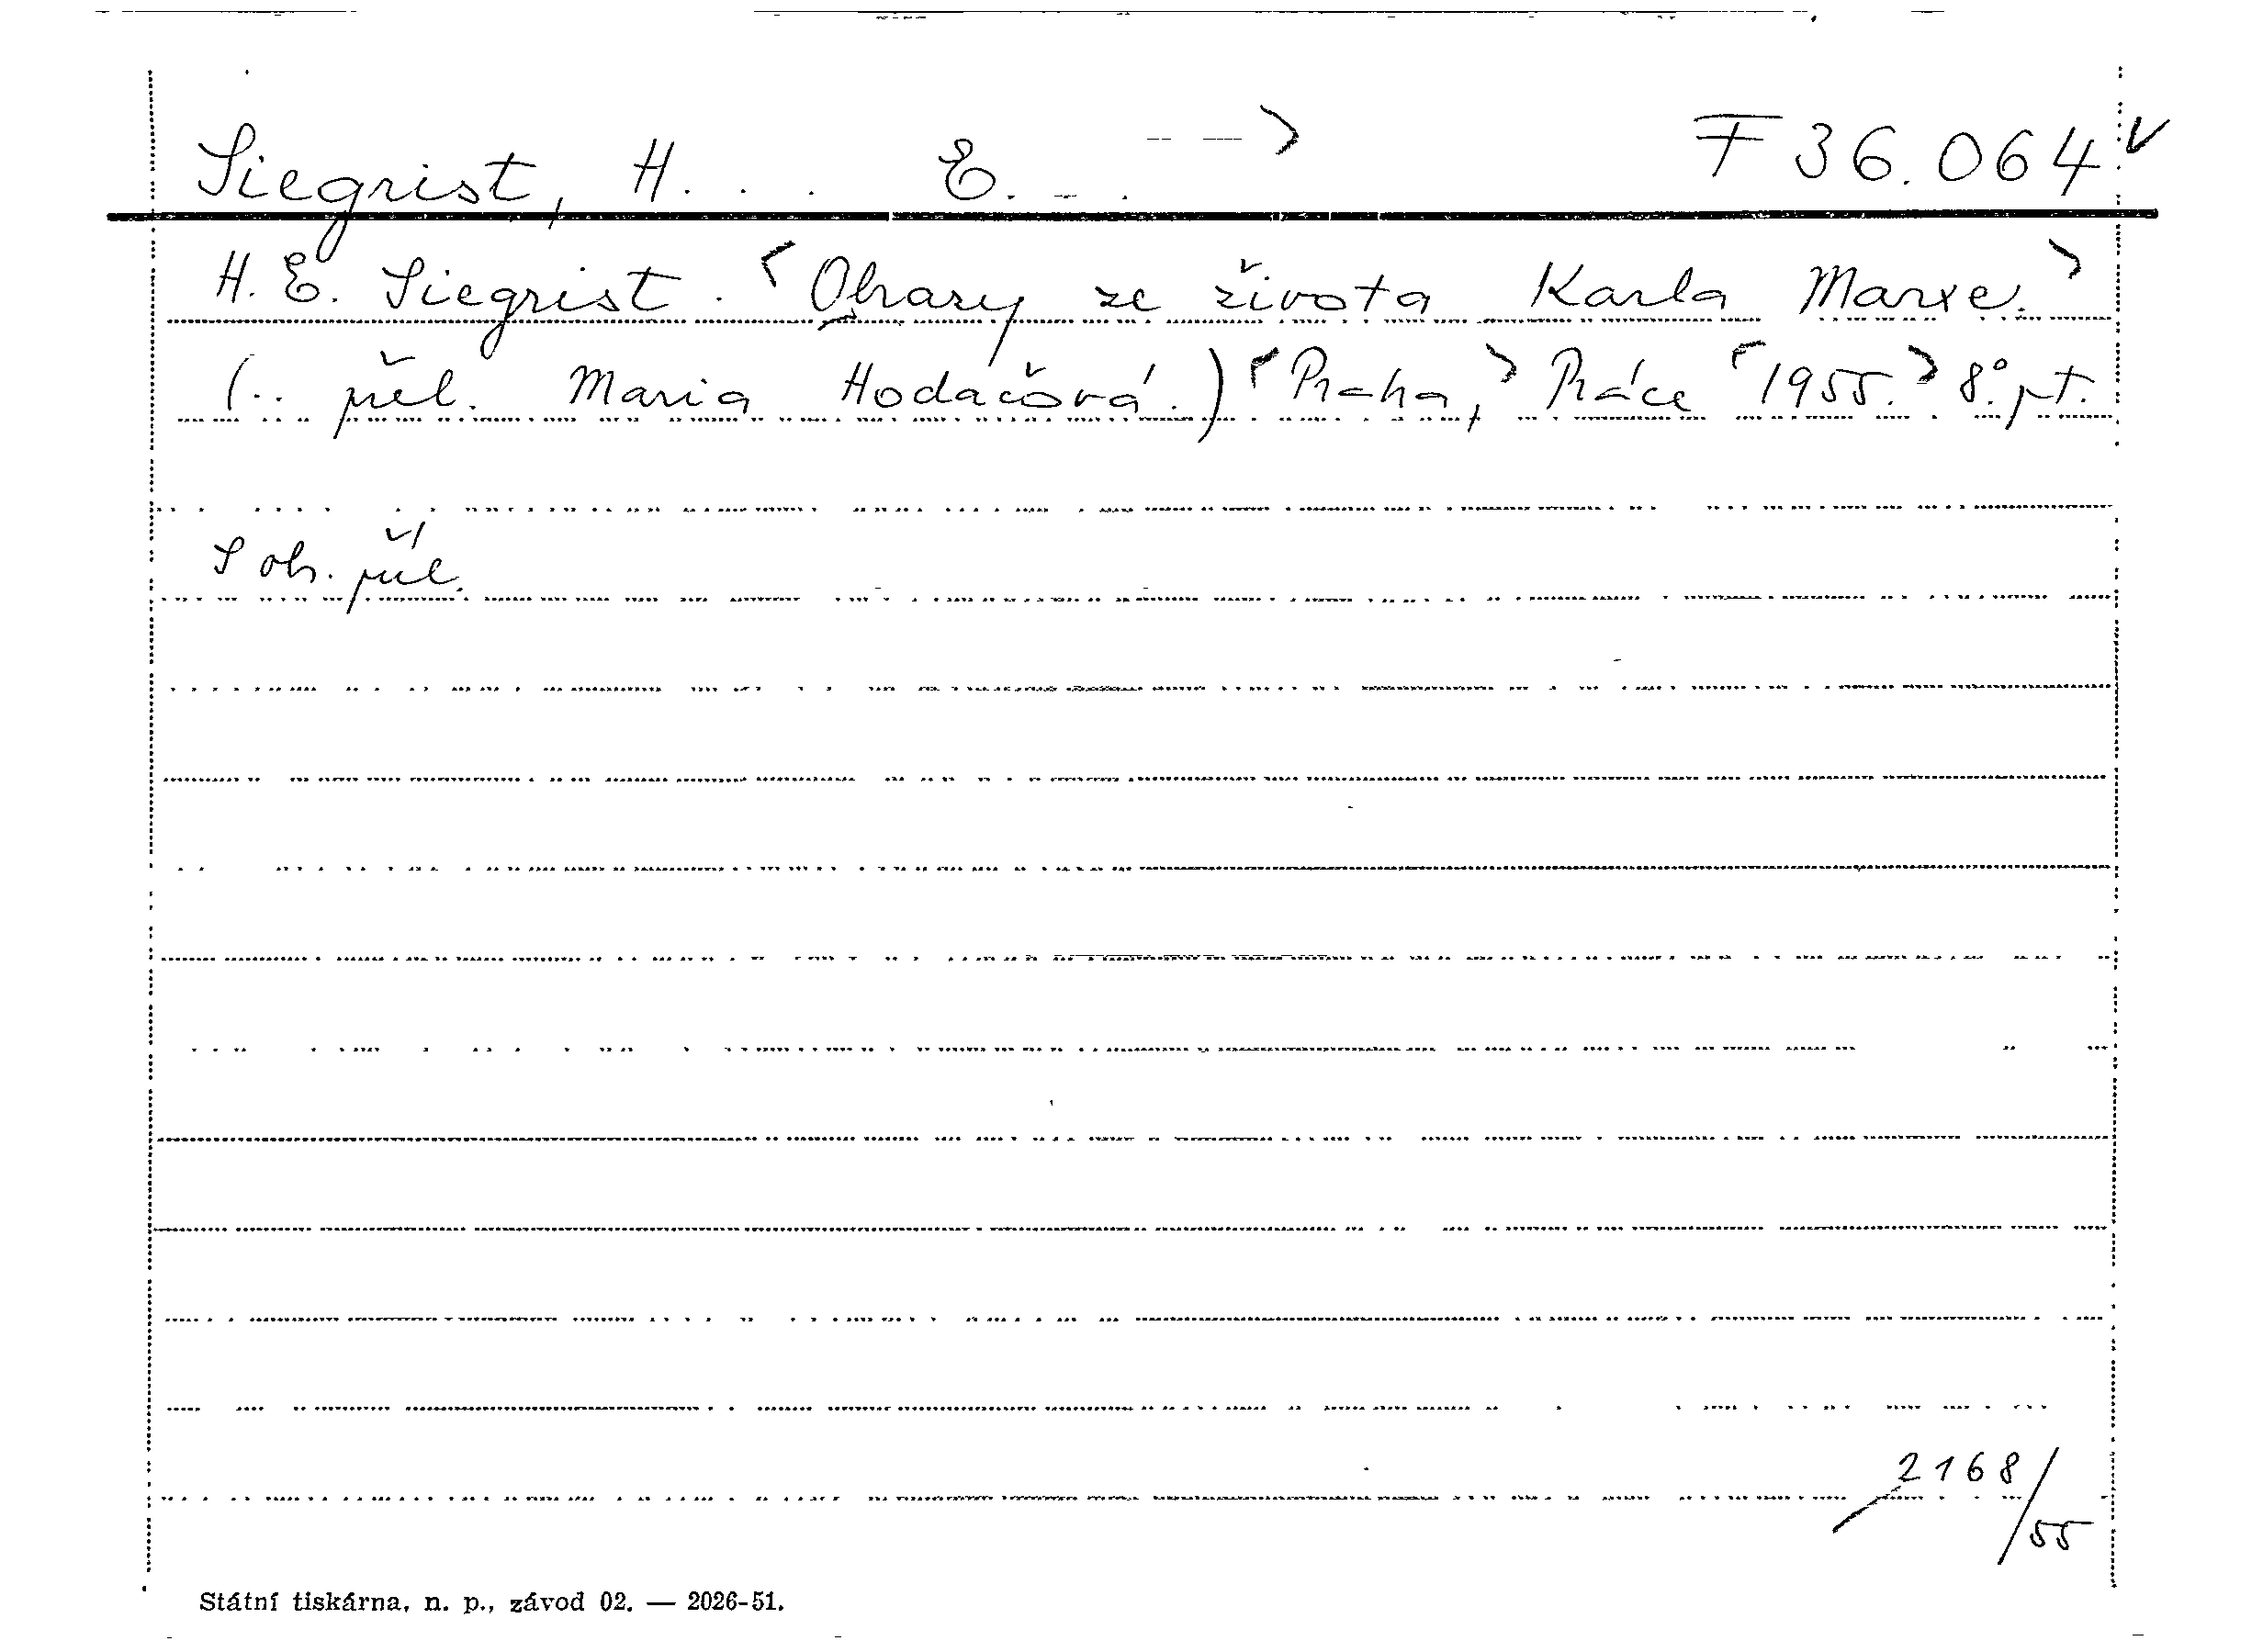 Siegrist, H. . . E. - . > F 36.064 v
H. E. Siegrist. < Obrazy ze života Karla Marxe. >
(.. přel. Maria Hodačová.) < Praha, > Práce < 1955. > 8° pt.
S ob. příl.
2168/55
Státní tiskárna, n. p., závod 02. — 2026-51.